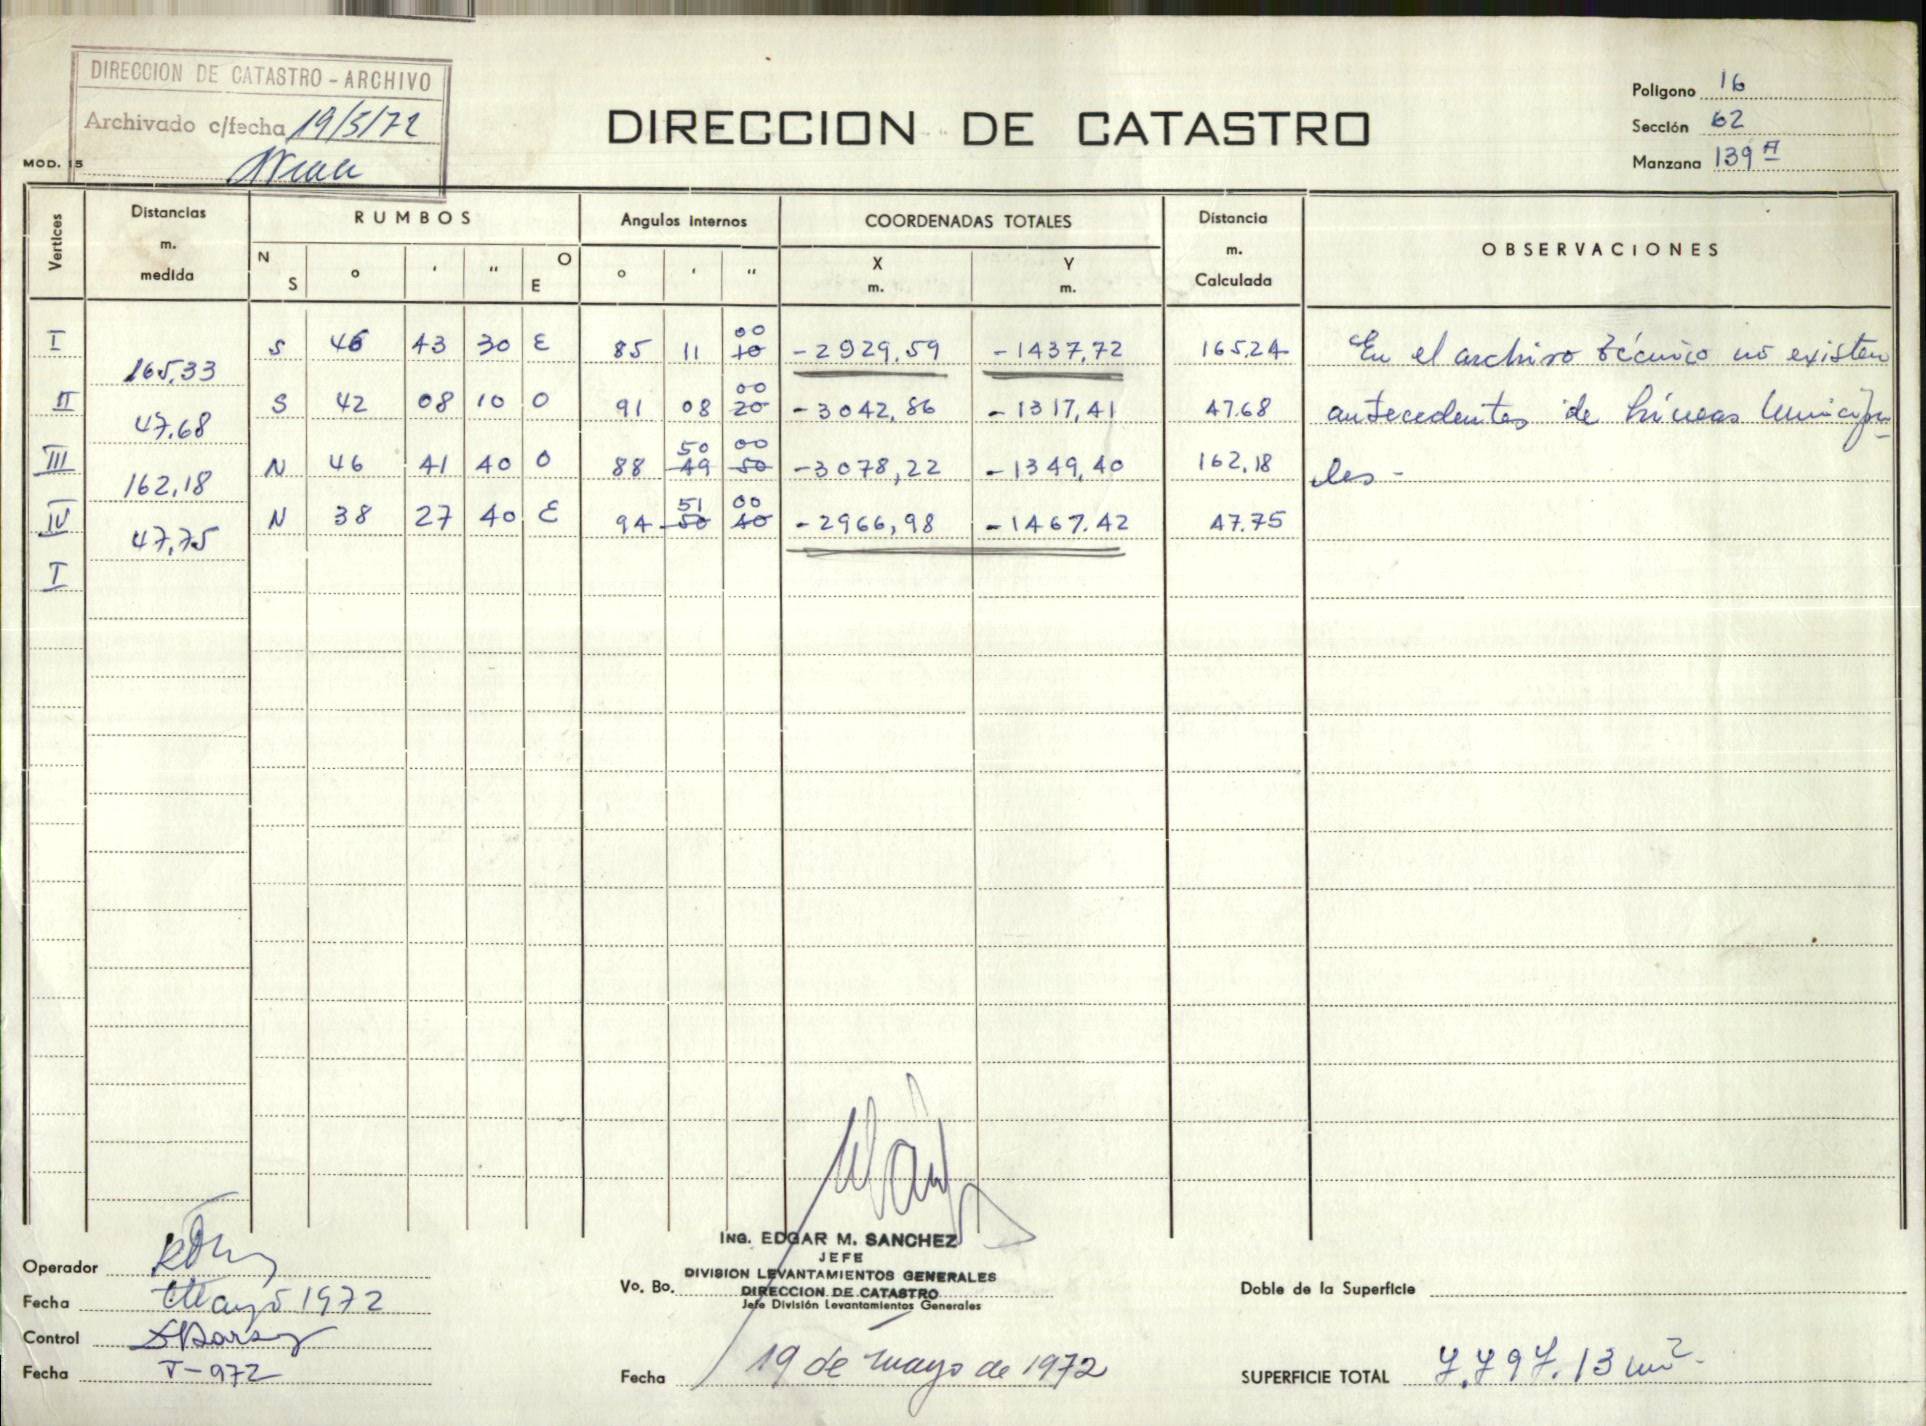 DIRECCION DE CATASTRO - ARCHIVO
Archivado c/fecha 19/5/72
MOD. 15
DIRECCION DE CATASTRO
Poligono 16
Sección 62
Manzana 139 A
Vertices
Distancias m. medida
RUMBOS
N S ° ' " O E
Angulos internos
° ' "
COORDENADAS TOTALES
X m. Y m.
Distancia m. Calculada
OBSERVACIONES
I S 46 43 30 E 85 11 00 10 -2929,59 -1437,72 165,24 En el archivo técnico no existen
165,33
II S 42 08 10 O 91 08 00 20 -3042,86 -1317,41 47.68 antecedentes de líneas Municipa-
47,68
III N 46 41 40 O 88 50 49 00 50 -3078,22 -1349,40 162,18 les -
162,18
IV N 38 27 40 E 94 51 50 00 40 -2966,98 -1467.42 47.75
47,75
I
Operador
Fecha Mayo 1972
Control
Fecha V-972
ING. EDGAR M. SANCHEZ
JEFE
DIVISION LEVANTAMIENTOS GENERALES
Vo. Bo. DIRECCION DE CATASTRO
Jefe División Levantamientos Generales
Fecha 19 de mayo de 1972
Doble de la Superficie
SUPERFICIE TOTAL 7.797.13 m2.